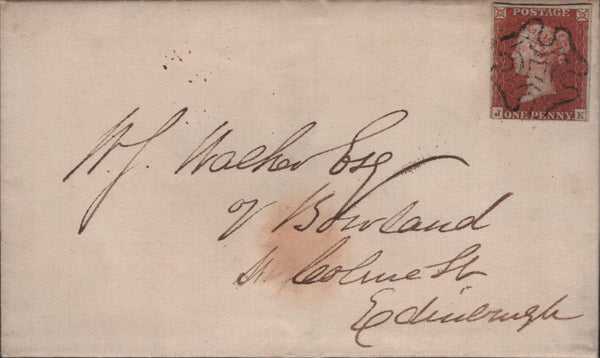 POSTAGE
J ONE PENNY K
W. J. Walker Esq
of Bowland
St Colme St
Edinburgh